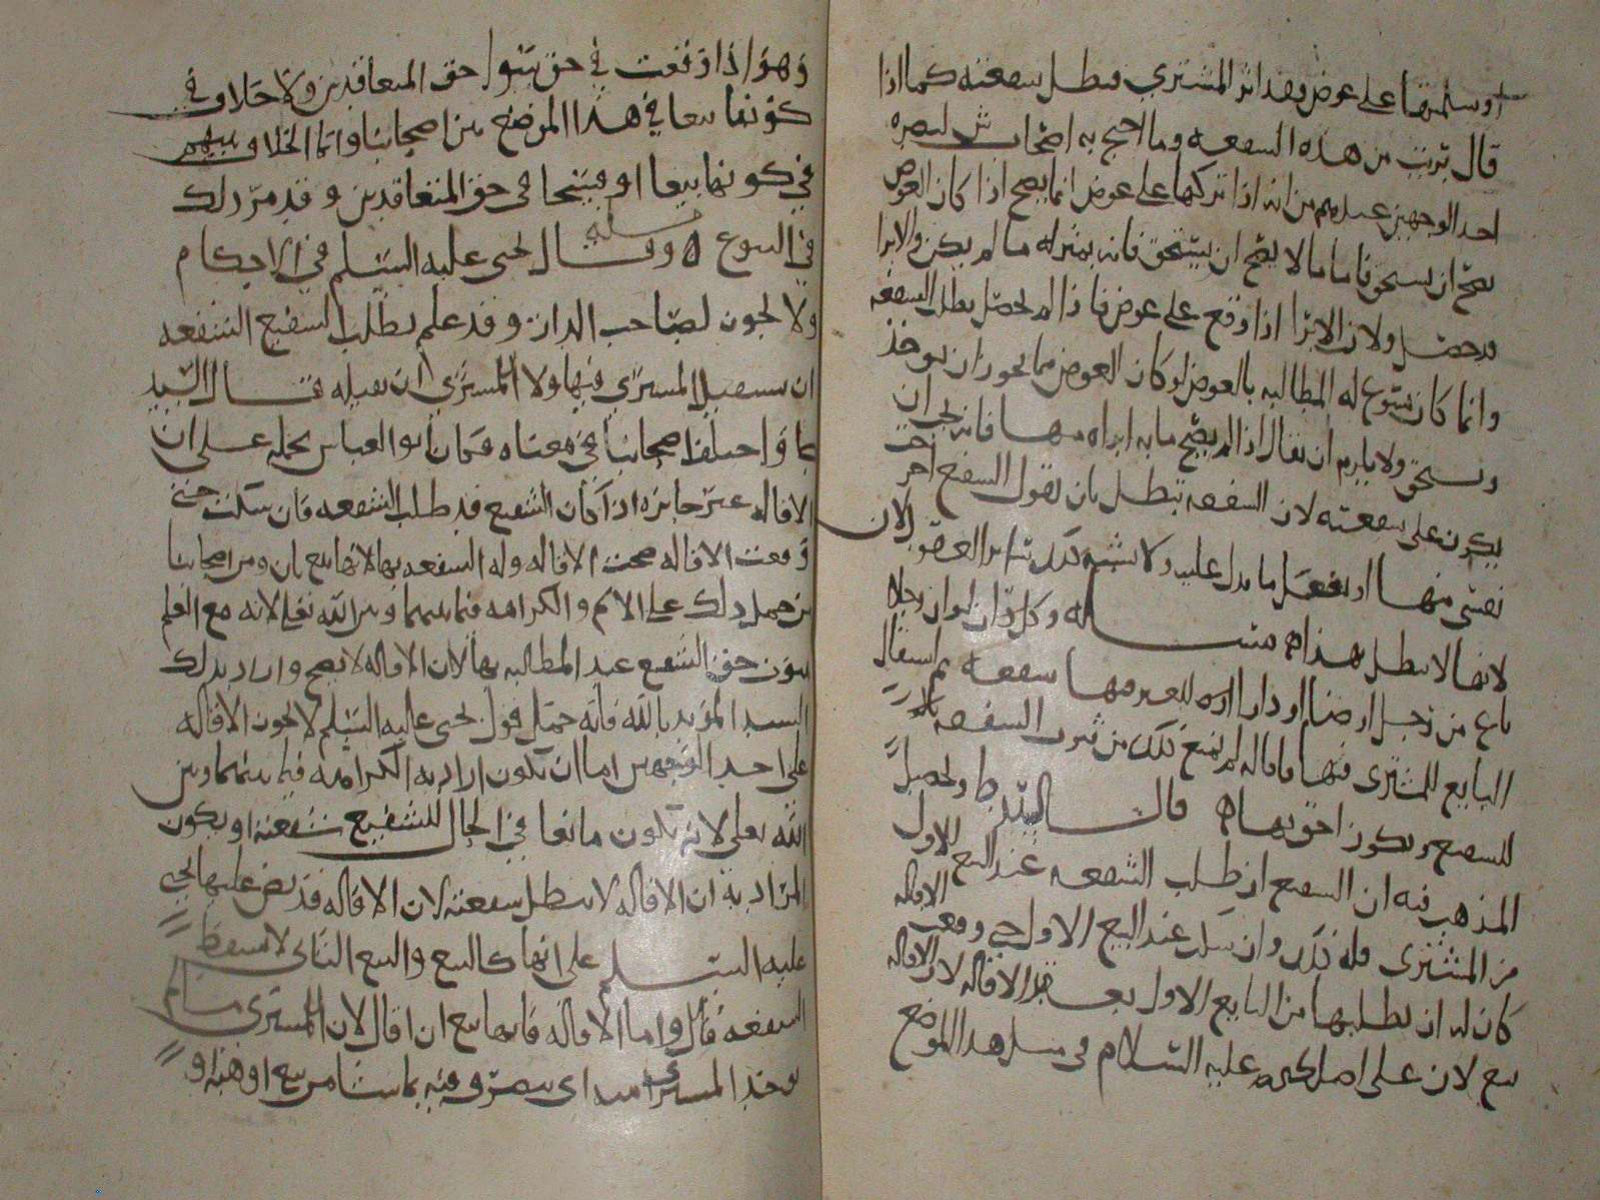 او سلمتها على عوض بعد اثر المشتري فبطل شفعته كما اذا
قال برئت من هذه الشفعه وما احتج به اصحاب ش لنصره
احد الوجهين عندهم من انه اذا تركها على عوض انما يصح اذا كان العوض
يصح ان يستحق فاما ما لا يصح ان يستحق فانه بمنزله ما لم يكن والابرا
قد حصل ولان الابرا اذا وقع على عوض فاذا لم يحصل بطل الشفعه
وانما كان يسوع له المطالبه بالعوض لو كان العوض مما يجوز ان يوخذ
ويستحق ولا يلزم ان يقال اذا لم يصح ما به ابراه منها فانه يجب ان
يكون على شفعته لان الشفعه تبطل بان يقول الشفيع اخر
نفسي منها او يفعل ما يدل عليه ولا يشبه ذلك سائر العقود لان
لانها لا تبطل بهذا ه مسـاله وكل ذان لو ان رجلا
باع من رجل ارضا او دارا له للغير فيها شفعه ثم استقال
البايع المشتري فيها فاقاله لم يمنع ذلك من ثبوت الشفعه
للشفيع ويكون احق بها ه قال السيد ط وتحصيل
المذهب فيه ان الشفيع ان طلب الشفعه عند البيع الاول
من المشتري فله ذلك وان سكت عند البيع الاول حتى وقعت الاقاله
كان له ان يطلبها من البايع الاول بعد الاقاله لان الاقاله
بيع لان على اصل يحيى عليه السلام في مثل هذا الموضع
وهو اذا وقعت في حق سوا حق المتعاقدين ولا خلاف في
كونها بيعا في هذا الموضع بين اصحابنا وانما الخلاف بينهم
في كونها بيعا او فسخا في حق المتعاقدين وقد مر ذلك
في البيوع ه مسله وقـال يحيى عليه السلم في الاحكام
ولا يجوز لصاحب الدار وقد علم بطلب الشفيع الشفعه
ان يستقيل المشتري فيها ولا المشتري ان يقيله قـال السيد
ط واختلف اصحابنا في معناه فكان ابو العباس يحمله على ان
الاقاله غير جايزه اذا كان الشفيع قد طلب الشفعه فان سكت حتى
وقعت الاقاله صحت الاقاله وله الشفعه بها لانها بيع بان ومن اصحابنا
من حمل ذلك على الاثم والكراهه فيما بينهما وبين الله تعالى لانه مع العلم
يفوت حق الشفيع عند المطالبه بها لان الاقاله لا تصح واراد بذلك
السيد المؤيد بالله فانه حمل قول يحيى عليه السلم لا يجوز الاقاله
على احد الوجهين اما ان يكون اراد به الكراهه فيما بينهما وبين
الله تعالى لانه يكون مانعا في الحال للشفيع شفعته او يكون
المراد به ان الاقاله لا تبطل شفعته لان الاقاله قد نص عليها يحيى
عليه السـلم على انها كالبيع والبيع الثاني لا يسقط
الشفعه قال واما الاقاله فانها بيع ان اقال لان المشتري
يوخذ المشتري مبدا اي يتصرف فيه بما شا من بيع او هبه او